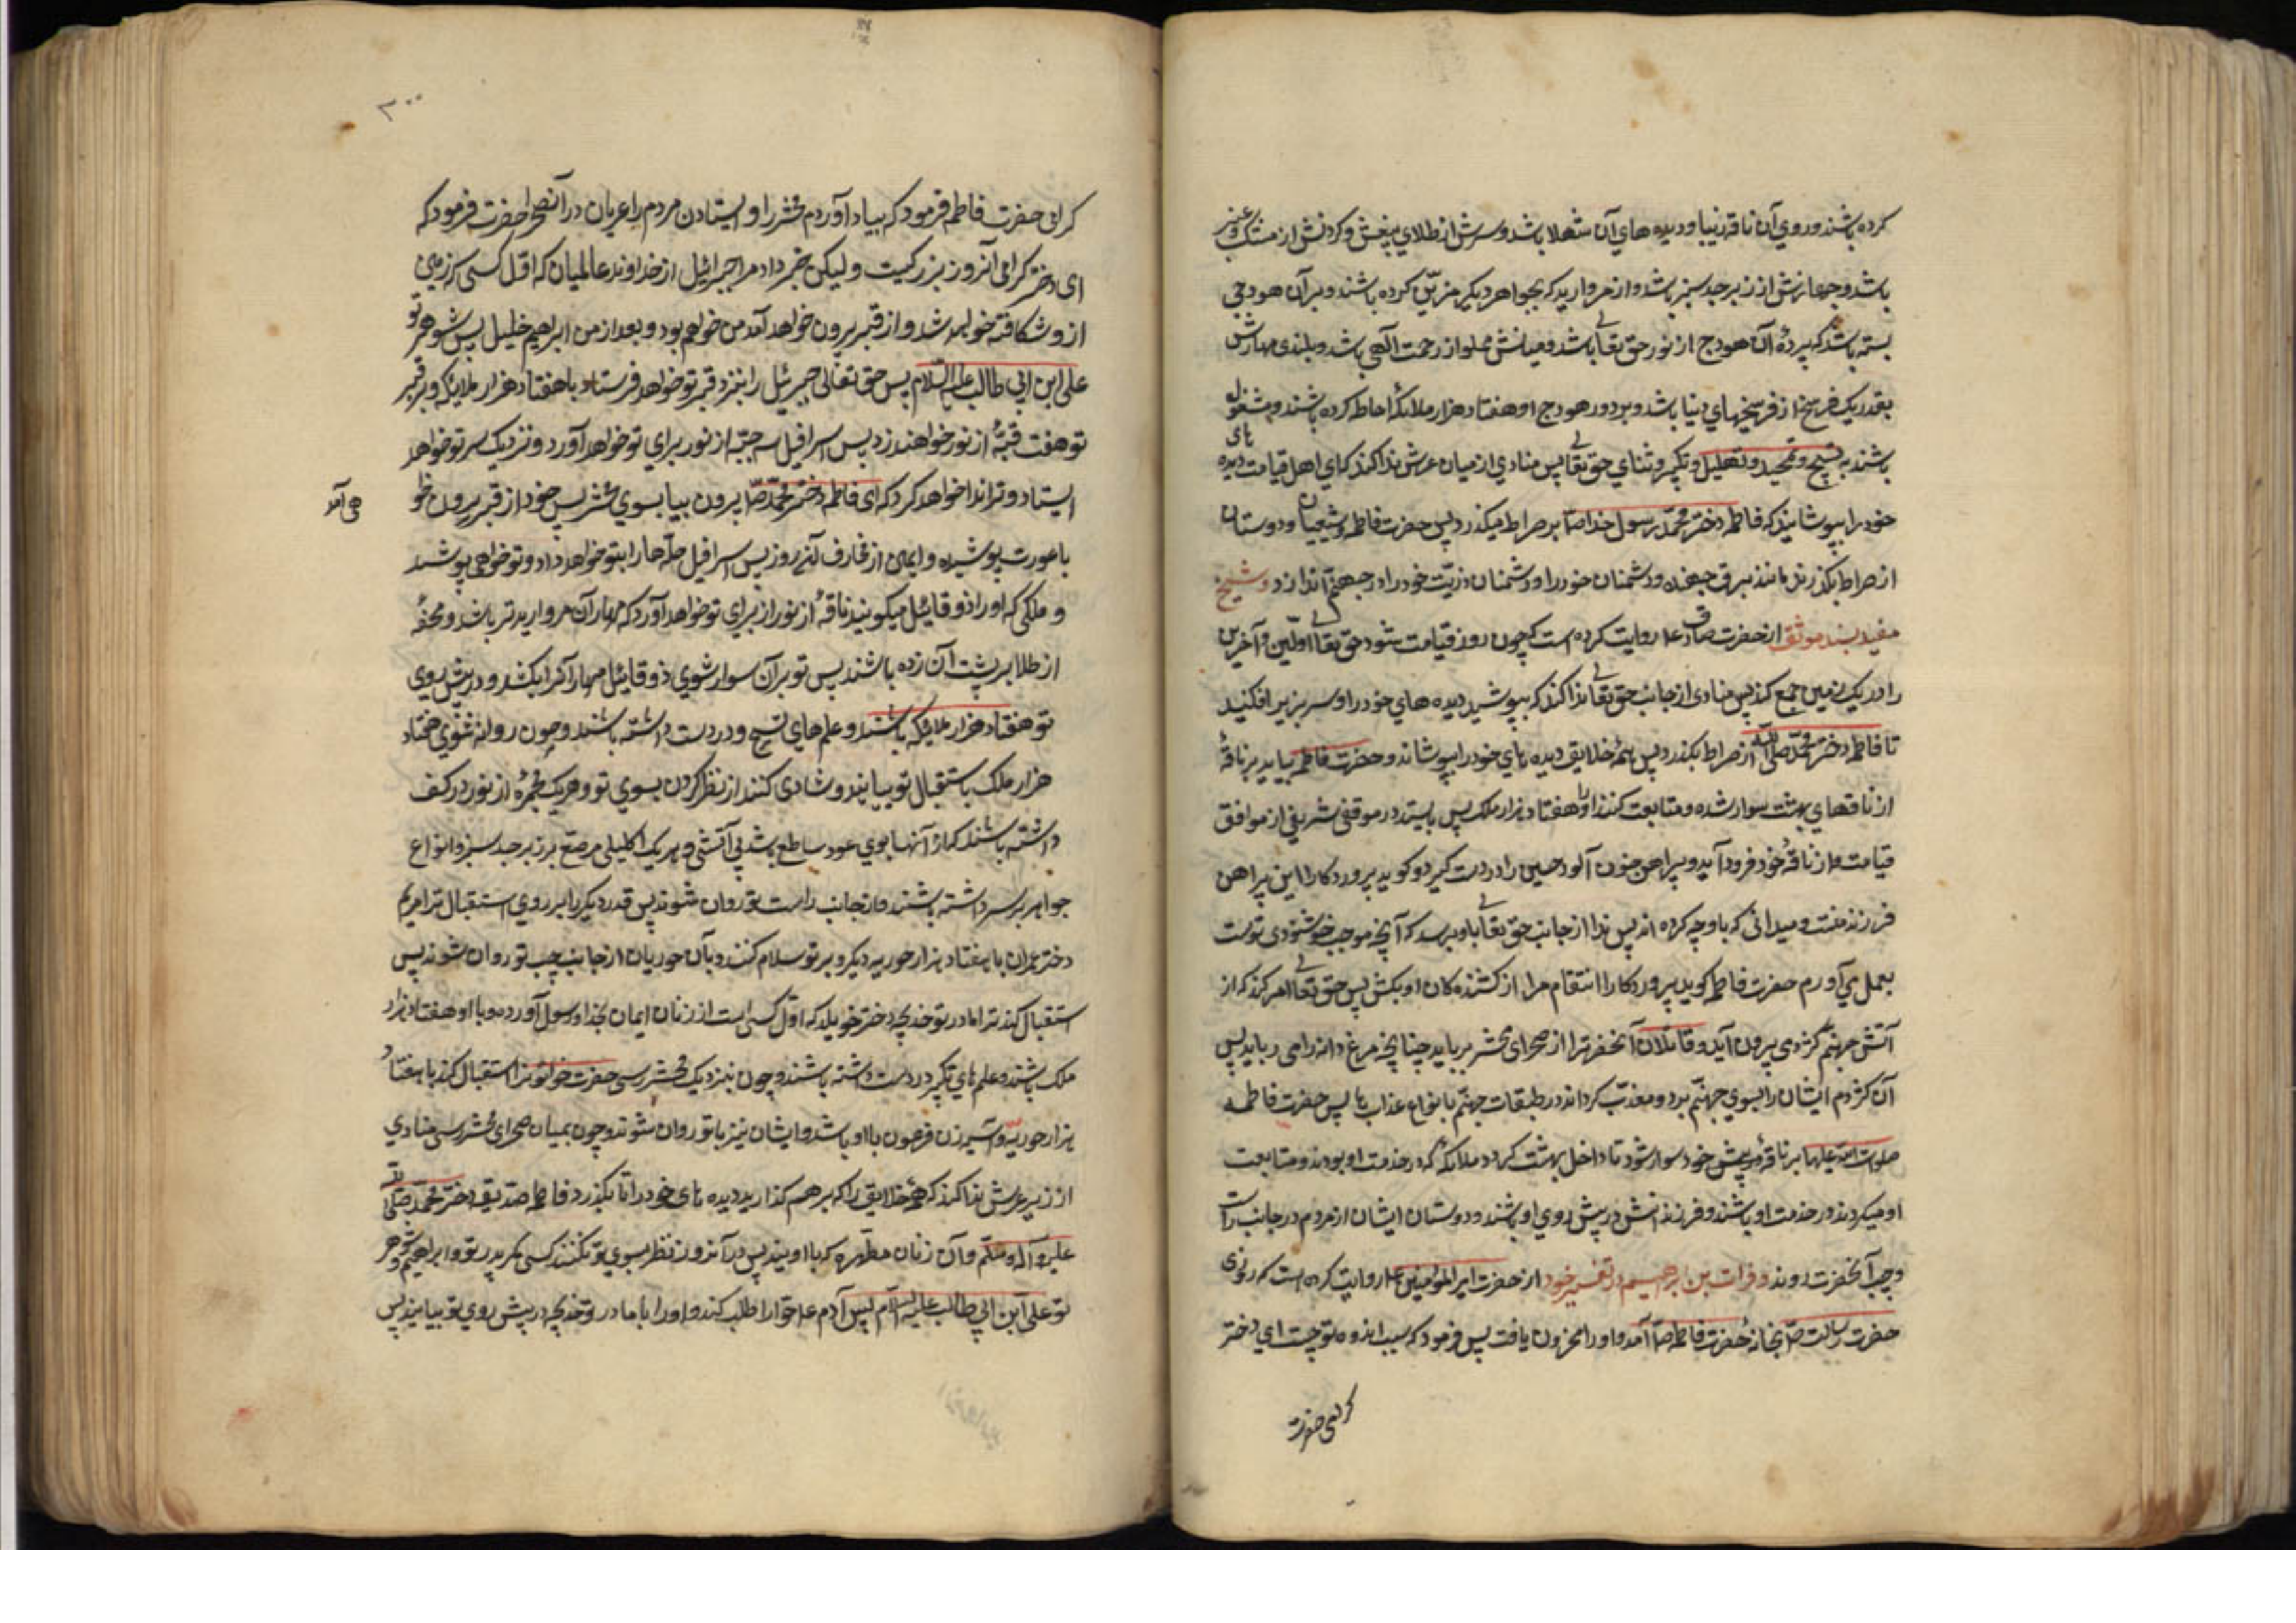 کرده باشند و روی آن ناقه زیبا و دیده های آن شهلا باشد و سرش از طلای بیغش و کردنش از مشک و عنبر
باشد و جهازش از زبرجد سبز باشد و از مروارید که بجواهر دیکر مزیّن کرده باشند و بر آن هودجی
بسته باشد که پردهٔ آن هودج از نور حق تعالی باشد و میانش مملو از رحمت آلهی باشد و بلندی مهارش
بقدر یک فرسخ از فرسخهای دنیا باشد و بر دور هودج او هفتاد هزار ملائکه احاطه کرده باشند و مشغول
باشند به تسبیح و تمجید و تهلیل و تکبیر و ثنای حق تعالی پس منادی از میان عرش ندا کند که ای اهل قیامت دیده های
خود را بپوشانید که فاطمه دختر محمّد رسول خدا ص بر صراط میکذرد پس حضرت فاطمه و شیعیان و دوستان
از صراط بکذرند مانند برق جهنده و دشمنان خود را و دشمنان ذریّت خود را در جهنم اندازد و شیخ
مفید بسند موثق از حضرت صادق ع روایت کرده است که چون روز قیامت شود حق تعالی اولّین و آخرین
را در یک زمین جمع کند پس منادی از جانب حق تعالی ندا کند که بپوشید دیده های خود را و سر بزیر افکنید
تا فاطمه دختر محمّد صلی الله از صراط بکذرد پس همهٔ خلایق دیده های خود را بپوشانند و حضرت فاطمه بیاید بر ناقهٔ
از ناقهای بهشت سوار شده و متابعت کنند او را هفتاد هزار ملک پس بایستد در موقفی شریفی از مواقف
قیامت و از ناقهٔ خود فرود آید و پیراهن خون آلود حسین را در دست کیرد و کوید پروردکارا این پیراهن
فرزند منست و میدانی که با او چه کرده اند پس ندا از جانب حق تعالی باو برسد که آنچه موجب خوشنودی توست
بعمل می آورم حضرت فاطمه کوید پروردکارا انتقام مرا از کشنده کان او بکش پس حق تعالی امر کند که از
آتش جهنّم کژدمی بیرون آید و قاتلان آنحضرت را از صحرای محشر برباید چنانچه مرغ دانه را می رباید پس
آن کژدم ایشان را بسوی جهنّم برد و معذّب کرداند در طبقات جهنّم بانواع عذاب ها پس حضرت فاطمه
صلوات الله علیها بر ناقهٔ پیش خود سوار شود تا داخل بهشت کردد و ملائکه که در خدمت او بودند و متابعت
او میکردند در خدمت او باشند و فرزندانش در پیش روی او باشند و دوستان ایشان از مردم در جانب راست
و چپ آنحضرت روند و فرات بن ابرهیم در تفسیر خود از حضرت امیر المؤمنین ع روایت کرده است که روزی
حضرت رسالت ص بخانهٔ حضرت فاطمه ص آمد و او را محزون یافت پس فرمود که سبب اندوه تو چیست ای دختر
کرامی حضرت
۳۰۰
کرامی حضرت فاطمه فرمود که بیاد آوردم محشر را و ایستادن مردم را عریان در آنصحرا حضرت فرمود که
ای دختر کرامی آنروز بزرکیست و لیکن خبر داد مرا جبرائیل از خداوند عالمیان که اوّل کسی که زمین
از و شکافته خواهد شد و از قبر بیرون خواهد آمد من خواهم بود و بعد از من ابرهیم خلیل پس شوهر تو
علی ابن ابی طالب علیه السّلام پس حق تعالی جبرئیل را بنزد قبر تو خواهد فرستاد با هفتاد هزار ملایکه و بر قبر
تو هفت قبّهٔ از نور خواهند زد پس اسرافیل سه جبّه از نور برای تو خواهد آورد و نزدیک سر تو خواهد
ایستاد و ترا ندا خواهد کرد که ای فاطمه دختر محمّد ص بیرون بیا بسوی محشر پس خود از قبر بیرون خوا
هی آمد
با عورت پوشیده و ایمن از مخاوف آن روز پس اسرافیل حلّه ها را بتو خواهد داد و تو خواهی پوشید
و ملکی که او را ذوقائیل میکویند ناقهٔ از نور از برای تو خواهد آورد که مهار آن مروارید تر باشد و محفّهٔ
از طلا بر پشت آن زده باشند پس تو بر آن سوار شوی ذوقائیل مهار آنرا بکشد و در پیش روی
تو هفتاد هزار ملایکه باشند و علم های تسبیح و در دست داشته باشند و چون روانه شوی هفتاد
هزار ملک باستقبال تو بیایند و شادی کنند از نظر کردن بسوی تو و هر یک مجمرهٔ از نور در کف
داشته باشند که از آنها بوی عود ساطع باشد بی آتشی و هر یک اکلیلی مرصع بر زبرجد سبز و انواع
جواهر بر سر داشته باشند و از جانب راست تو روان شوند پس قدر دیکر را بر روی استقبال ترا مریم
دختر عمران با هفتاد هزار حوریه دیکر و بر تو سلام کنند و با آن حوریان از جانب چپ تو روان شوند پس
استقبال کند ترا مادر تو خدیجه دختر خویلد که اوّل کسی است از زنان ایمان بخدا و رسول آورده و با او هفتاد هزار
ملک باشند و علم های تکبیر در دست داشته باشند و چون بنزدیک محشر رسی حضرت حوا تو را استقبال کند با هفتاد
هزار حوریه و آسیه زن فرعون با او باشد و ایشان نیز با تو روان شوند و چون بمیان صحرای محشر رسی منادی
از زیر عرش ندا کند که همهٔ خلایق را که بر هم کذارید دیده های خود را تا بکذرد فاطمه صدّیقه دختر محمّد صلّی الله
علیه و آله و سلّم و آن زنان مطهره که با اویند پس در آنروز نظر بسوی تو نکنند کسی مکر پدر تو و ابراهیم و شوهر
تو علی ابن ابی طالب علیه السّلام پس آدم ع حوا را طلب کند و او را با مادر تو خدیجه در پیش روی تو بیایند پس